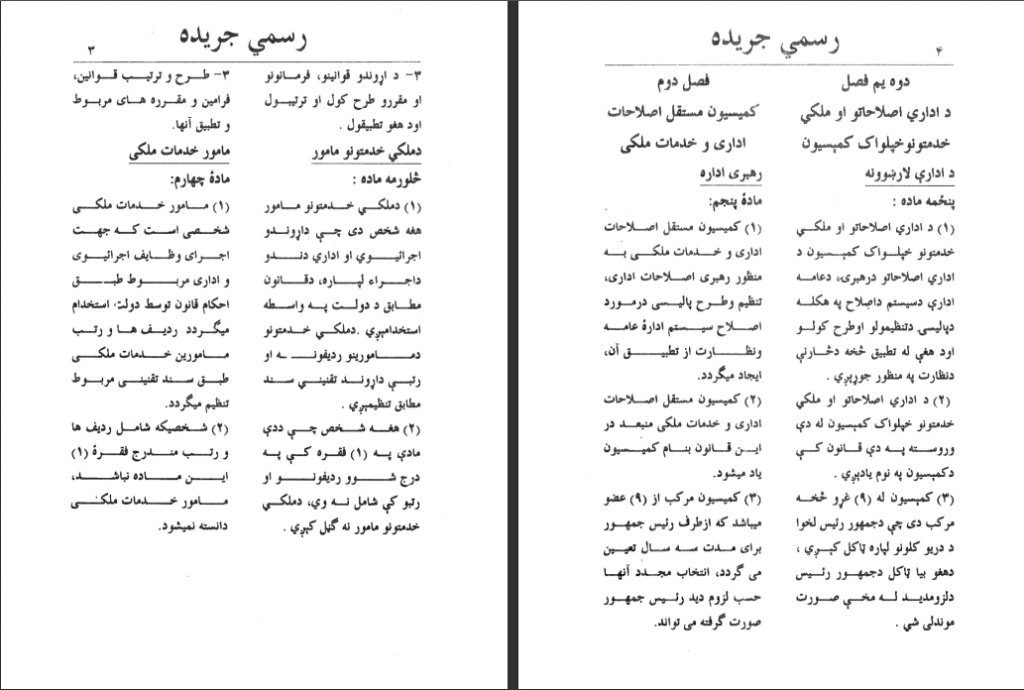 رسمي جریده
۳
۳- د اړوندو قوانینو، فرمانونو
او مقررو طرح کول او ترتیبول
اود هغو تطبیقول .
دملکي خدمتونو مامور
څلورمه ماده :
(۱) دملکي خدمتونو مامور
هغه شخص دی چې داړوندو
اجرائیوي او اداري دندو
داجراء لپاره، دقانون
مطابق د دولت په واسطه
استخدامېږي .دملکي خدمتونو
دمامورینو ردیفونه او
رتبې داړوند تقنیني سند
مطابق تنظیمېږي .
(۲) هغه شخص چې ددې
مادې په (۱) فقره کې په
درج شوو ردیفونو او
رتبو کې شامل نه وي، دملکي
خدمتونو مامور نه ګڼل کېږي .
۳- طرح و ترتیب قوانین،
فرامین و مقرره های مربوط
و تطبیق آنها.
مامور خدمات ملکی
مادۀ چهارم:
(۱) مامور خدمات ملکی
شخصی است که جهت
اجرای وظایف اجرائیوی
و اداری مربوط طبق
احکام قانون توسط دولت استخدام
میگردد ردیف ها و رتب
مامورین خدمات ملکی
طبق سند تقنینی مربوط
تنظیم میگردد.
(۲) شخصیکه شامل ردیف ها
و رتب مندرج فقرۀ (۱)
این ماده نباشد،
مامور خدمات ملکی
دانسته نمیشود.
رسمي جریده
۴
دوه یم فصل
د اداري اصلاحاتو او ملکي
خدمتونوخپلواک کمېسیون
د ادارې لارښوونه
پنځمه ماده :
(۱) د اداري اصلاحاتو او ملکي
خدمتونو خپلواک کمېسیون د
اداري اصلاحاتو درهبرۍ، دعامه
ادارې دسیستم داصلاح په هکله
دپالیسۍ دتنظیمولو اوطرح کولو
اود هغې له تطبیق څخه دڅارنې
دنظارت په منظور جوړېږي .
(۲) د اداري اصلاحاتو او ملکي
خدمتونو خپلواک کمېسیون له دې
وروسته په دې قانون کې
دکمېسیون په نوم یادېږي .
(۳) کمېسیون له (۹) غړو څخه
مرکب دی چې دجمهور رئیس لخوا
د دریو کلونو لپاره ټاکل کېږي ،
دهغو بیا ټاکل دجمهور رئیس
دلزومدید له مخې صورت
موندلی شي .
فصل دوم
کمیسیون مستقل اصلاحات
اداری و خدمات ملکی
رهبری اداره
مادۀ پنجم:
(۱) کمیسیون مستقل اصلاحات
اداری و خدمات ملکی به
منظور رهبری اصلاحات اداری،
تنظیم وطرح پالیسی درمورد
اصلاح سیستم ادارۀ عامه
ونظارت از تطبیق آن،
ایجاد میگردد.
(۲) کمیسیون مستقل اصلاحات
اداری و خدمات ملکی منبعد در
این قانون بنام کمیسیون
یاد میشود.
(۳) کمیسیون مرکب از (۹) عضو
میباشد که ازطرف رئیس جمهور
برای مدت سه سال تعیین
می گردد، انتخاب مجدد آنها
حسب لزوم دید رئیس جمهور
صورت گرفته می تواند.